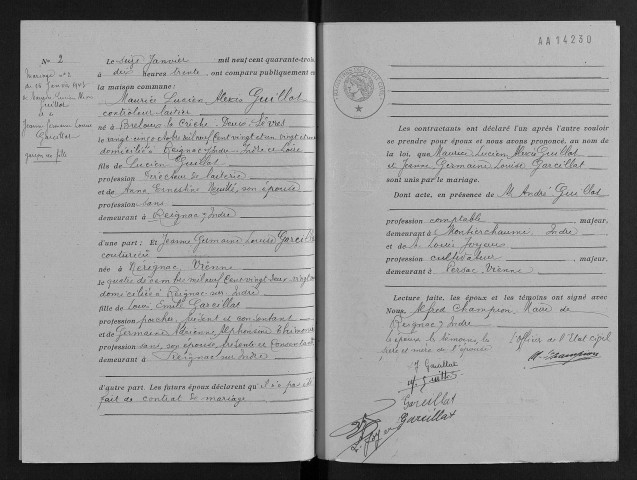 N° 2
Mariage n° 2
du 16 Janvier 1943
Guillot
et de
Jeanne Germaine Louise
Garcillat
AA 14230
Le seize Janvier mil neuf cent quarante-trois
à dix heures trente, ont comparu publiquement en
la maison commune:
Maurice Lucien Alexis Guillot
contrôleur laitier
né à Breloux la Crèche Deux-Sèvres
le vingt cinq octobre mil neuf cent vingt et un
domicilié à Reignac Indre Indre et Loire
fils de Lucien Guillot
profession Directeur de laiterie
et de Anna Ernestine son épouse
profession sans
demeurant à Reignac Indre
d'une part: Et Jeanne Germaine Louise Garcillat
couturière
née à Vienne
le quatre décembre mil neuf cent vingt deux
domiciliée à Reignac sur Indre
fille de Louis Emile Garcillat
profession porcher, présent et consentant
et de Germaine Adrienne Alphonsine
profession sans, son épouse, présente et consentante
demeurant à Reignac sur Indre
d'autre part. Les futurs époux déclarent qu'il n'a pas été
fait de contrat de mariage
Les contractants ont déclaré l'un après l'autre vouloir
se prendre pour époux et nous avons prononcé, au nom de
la loi, que Maurice Lucien Alexis Guillot
et Jeanne Germaine Louise Garcillat
sont unis par le mariage.
Dont acte, en présence de M. André Guillot
profession comptable, majeur,
demeurant à Montierchaume Indre
et de Louis Joyeux
profession cultivateur, majeur,
demeurant à Persac Vienne
Lecture faite, les époux et les témoins ont signé avec
Nous, Alfred Champion, Maire de
Reignac Indre
les époux, les témoins, les
père et mère de l'épouse
L'officier de l'Etat civil
A. Champion
J Garcillat
M. Guillot
Garcillat
Garcillat
L. Joyeux